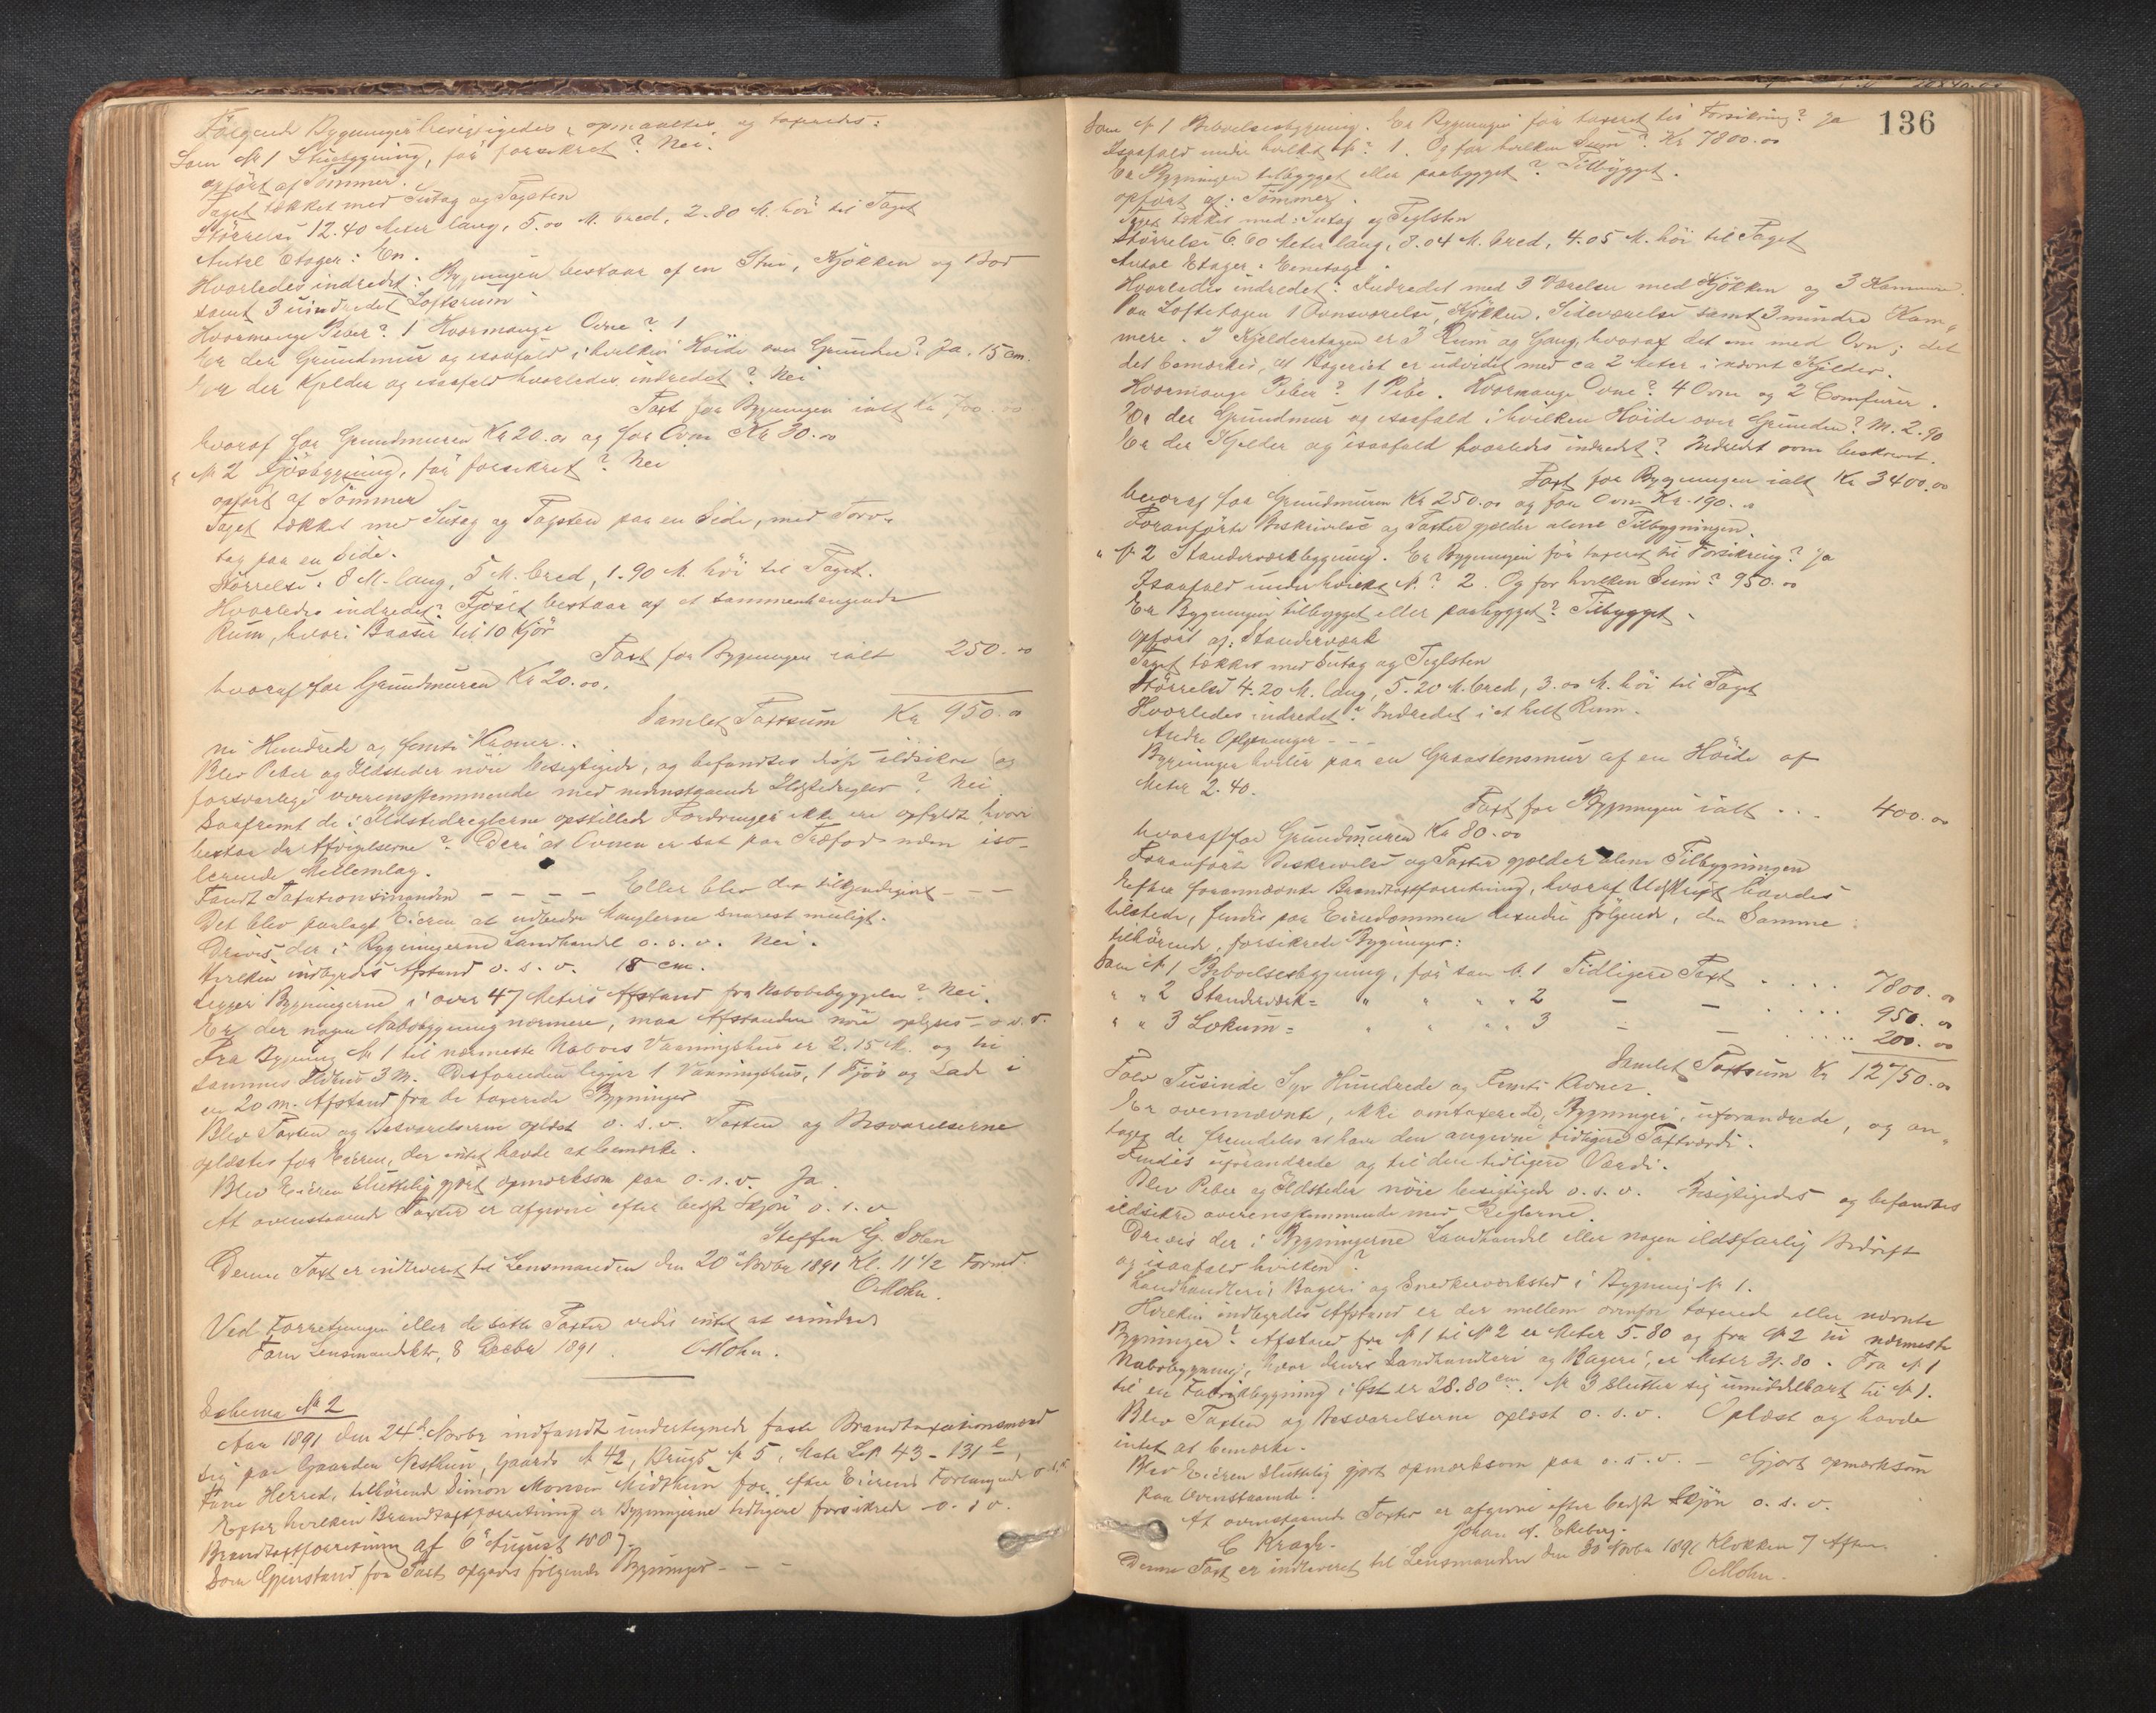 Følgende Bygninger besigtigedes, opmaaltes og taxeredes:
Som № 1 Stuebygning, før forsikret? Nei.
opført af Tømmer.
Taget tækket med Sutag og Tagsten
Størrelse 12.40 Meter lang, 5.00 M. bred, 2.80 M. høi til Taget
Antal Etager: En.
Hvorledes indredet: Bygningen bestaar af en Stue, Kjøkken og Bod
samt 3 uindredet Loftsrum
Hvormange Piber? 1 Hvormange Ovne? 1
Er der Grundmur og isaafald i hvilken Høide over Grunden? Ja. 15 cm.
Er der Kjelder og isaafald hvorledes indredet? Nei
Taxt for Bygningen ialt Kr 700.00
hvoraf for Grundmuren Kr 20.00 og for Ovne Kr 30.00
" № 2 Fjøsbygning, før forsikret? Nei
opført af Tømmer
Taget tækket med Sutag og Tagsten paa en Side, med Torv-
tag paa en Side.
Størrelse: 8 M. lang, 5 M. bred, 1.90 M. høi til Taget.
Hvorledes indredet? Fjøset bestaar af et sammenhængende
Rum, hvori Baase til 10 Kjør
Taxt for Bygningen ialt 250.00
hvoraf for Grundmuren Kr 20.00.
Samlet Taxtsum Kr 950.00
ni Hundrede og femti Kroner.
Blev Piber og Ildsteder nøie besigtigede, og befandtes disse ildsikre og
forsvarlige overensstemmende med nedenstaaende Ildstedregler? Nei
Saafremt de i Ildstedreglerne opstillede Fordringer ikke ere opfyldt, hvori
bestaa da Afvigelserne? Deri at Ovnen er sat paa Træfod uden iso-
lerende Mellemlag.
Fandt Taxationsmænden – – – – Eller blev det tilkjendegivet – – –
Det blev paalagt Eieren at udbedre Manglerne snarest muligt.
Drives der i Bygningerne Landhandel o. s. v. Nei.
Hvilken indbyrdes Afstand o. s. v. 18 cm.
Ligger Bygningerne i over 47 Meters Afstand fra Nabobebyggelse? Nei.
Er der nogen Nabobygning nærmere, maa Afstanden nøie oplyses – o. s. v.
Fra Bygning № 1 til nærmeste Nabos Vaaningshus er 2.15 M. og til
sammes Ildhus 3 M. Desforuden ligger 1 Vaaningshus, 1 Fjøs og Lade i
en 20 m. Afstand fra de taxerede Bygninger
Blev Taxten og Besvarelserne oplæst o. s. v. Taxten og Besvarelserne
oplæstes for Eieren, der intet havde at bemærke.
Blev Eieren sluttelig gjort opmærksom paa o. s. v. Ja.
At ovenstaaende Taxter er afgivne efter bedste Skjøn o. s. v.
Steffen G. Solen
Denne Taxt er indleveret til Lensmanden den 20de Novbr 1891 Kl. 11 1/2 Formd.
O Mohn.
Ved Forretningen eller de satte Taxter vides intet at erindre
Fane Lensmandsktr, 8 Decbr 1891. O Mohn.
Schema № 2
Aar 1891 den 24de Novbr indfandt undertegnede faste Brandtaxationsmænd
sig paa Gaarden Nesthun, Gaards № 42, Brugs № 5, Matr Lø 43 – 131 e,
Fane Herred, tilhørende Simon Monsen Midthun for, efter Eierens Forlangende o. s. v.
Efter hvilken Brandtaxtforretning er Bygningerne tidligere forsikrede o. s. v.
Brandtaxtforretning af 6te August 1887.
Som Gjenstand for Taxt opgaves følgende Bygninger – – –
136
Som № 1 Beboelsesbygning. Er Bygningen før taxeret til Forsikring? Ja
Isaafald under hvilket №? 1. Og for hvilken Sum? Kr 7800.00
Er Bygningen tilbygget eller paabygget? Tilbygget.
opført af: Tømmer.
Taget tækket med: Sutag og Teglsten
Størrelse 6.60 Meter lang, 8.04 M. bred, 4.05 M. høi til Taget
Antal Etager: Eenetage.
Hvorledes indredet? Indredet med 3 Værelser med Kjøkken og 3 Kammere.
Paa Loftetagen 1 Ovnsværelse, Kjøkken, Sideværelse samt 3 mindre Kam-
mere. I Kjelderetagen er 3 Rum og Gang, hvoraf det ene med Ovn; det
det bemærkes, at Bageriet er udvidet med ca 2 Meter i nævnt Kjelder.
Hvormange Piber? 1 Pibe. Hvormange Ovne? 4 Ovne og 2 Comfurer.
Er der Grundmur og isaafald i hvilken Høide over Grunden? M. 2.90
Er der Kjelder og isaafald hvorledes indredet? Indredet som beskrevet.
Taxt for Bygningen ialt Kr 3400.00
hvoraf for Grundmuren Kr 250.00 og for Ovne Kr. 190.00
Foranførte Beskrivelse og Taxter gjelder alene Tilbygningen.
" № 2 Standerværksbygning. Er Bygningen før taxeret til Forsikring? Ja
Isaafald under hvilket №? 2. Og for hvilken Sum? 950.00
Er Bygningen tilbygget eller paabygget? Tilbygget.
Opført af: Standerværk
Taget tækket med Sutag og Teglsten
Størrelse 4.20 M. lang, 5.20 M. bred, 3.00 M. høi til Taget
Hvorledes indredet? Indredet i et helt Rum.
Andre Oplysninger – – –
Bygningen hviler paa en Graastensmur af en Høide af
Meter 2.40.
Taxt for Bygningen ialt . . . 400.00
hvoraf for Grundmuren Kr 80.00
Foranførte Beskrivelse og Taxter gjælder alene Tilbygningen
Efter forannævnte Brandtaxtforretning, hvoraf Udskrift havdes
tilstede, findes paa Eiendommen desuden følgende, den Samme
tilhørende, forsikrede Bygninger:
Som № 1 Beboelsesbygning, før som № 1 Tidligere Taxt . . . . 7800.00
" " 2 Standerværk= " " " " 2 — — . . . . 950.00
" " 3 Lokum= " " " " 3 — — . . . . 200.00
Samlet Taxtsum Kr 12750.00
Tolv Tusinde Syv Hundrede og Femti Kroner.
Er ovennævnte, ikke omtaxerede, Bygninger, uforandrede, og an-
tages de fremdeles at have den angivne tidligere Taxtværdi.
Findes uforandrede og til den tidligere Værdi.
Blev Piber og Ildsteder nøie besigtigede o. s. v. Besigtigedes og befandtes
ildsikre overensstemmende med Reglerne.
Drives der i Bygningerne Landhandel eller nogen ildsfarlig Bedrift
og isaafald hvilken?
Landhandleri, Bageri og Snedkerværksted i Bygning № 1.
Hvilken indbyrdes Afstand er der mellem ovenfor taxerede eller nævnte
Bygninger? Afstand fra № 1 til № 2 er Meter 5.80 og fra № 2 til nærmeste
Nabobygning, hvor drives Landhandleri og Bageri, er Meter 31.80. Fra № 1
til en Fabrikbygning i Øst er 28.80 cm. № 3 slutter sig umiddelbart til № 1.
Blev Taxten og Besvarelserne oplæst o. s. v. Oplæst og havde
intet at bemærke.
Blev Eieren sluttelig gjort opmærksom paa o. s. v. – Gjort opmærksom
paa Ovenstaaende.
At ovenstaaende Taxter er afgivne efter bedste Skjøn o. s. v.
C Kragh. Johan A. Ekeberg.
Denne Taxt er indleveret til Lensmanden den 30 Novbr 1891 Klokken 7 Aften.
O Mohn.